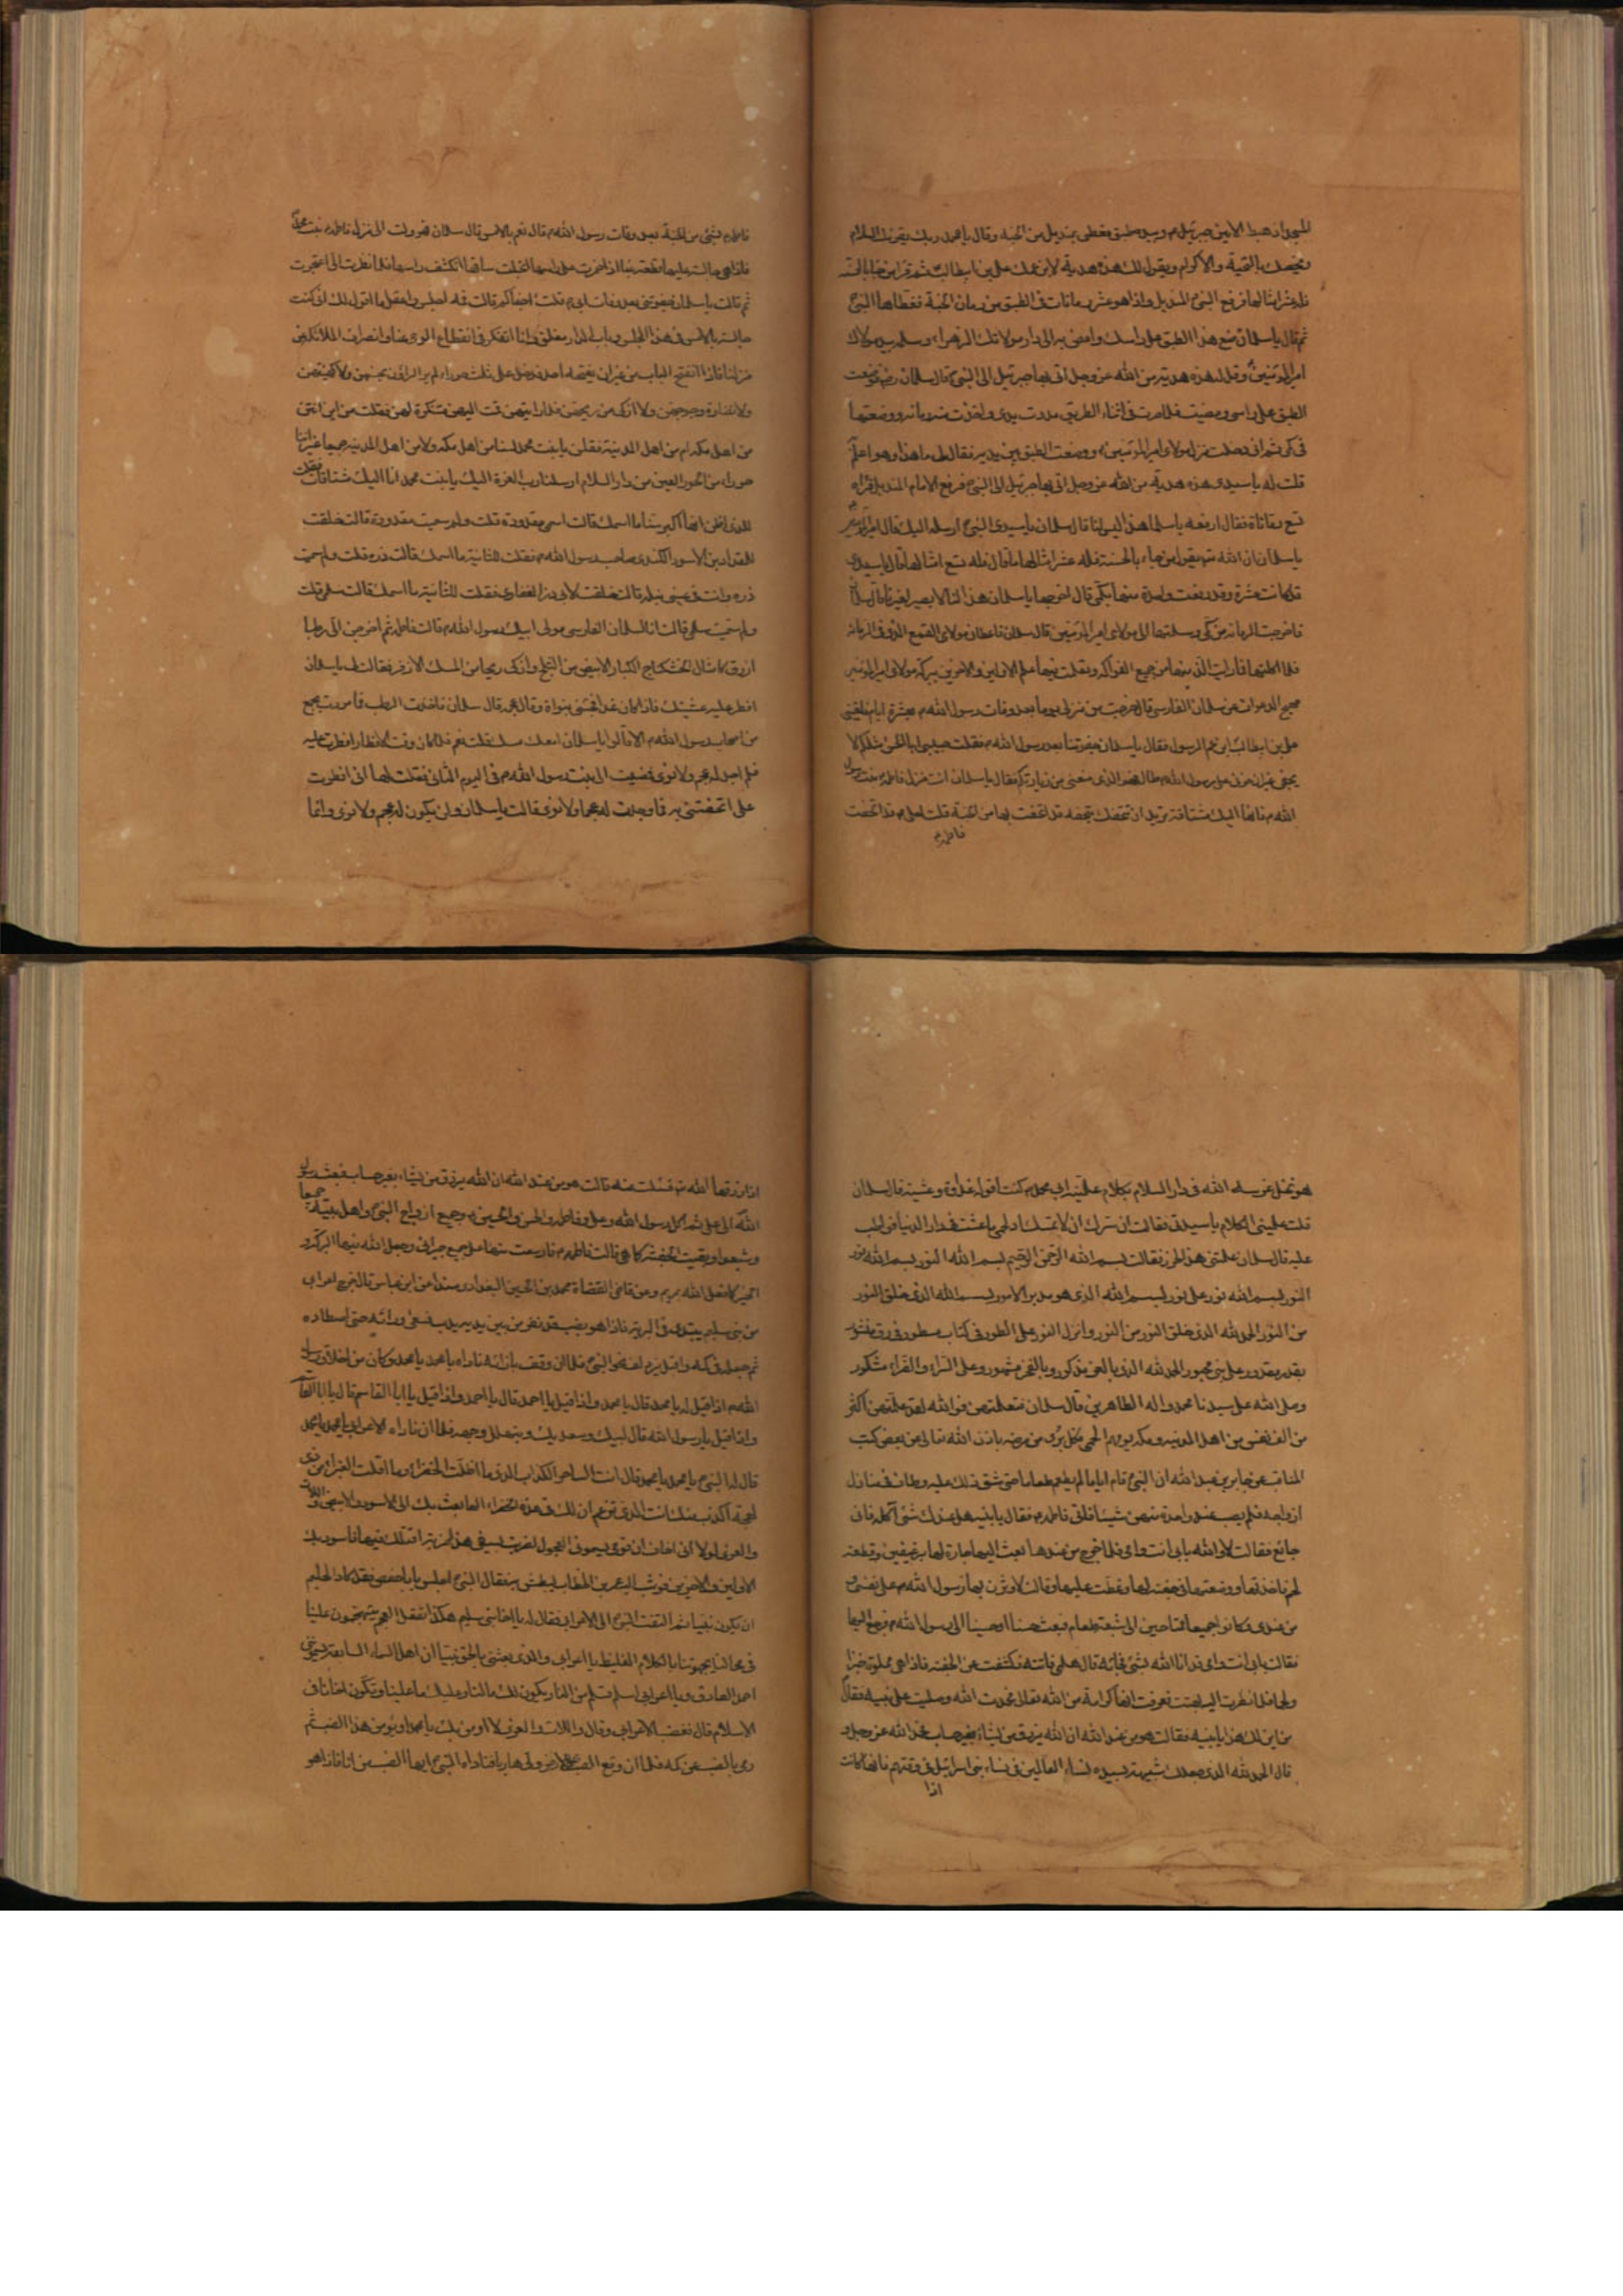 المسجد اذ هبط الامين جبرئيل م وبيده طبق مغطى بمنديل من الجنة وقال يا محمد ربك يقرئك السلام
ويخصك بالتحية والاكرام ويقول لك هذه هدية لابن عمك علي بن ابيطالب ثم قرا من جاء بالحسنة
فله عشر امثالها فرفع النبي المنديل واذا هو عشر رمانات في الطبق من رمان الجنة فغطاها النبي
ثم قال يا سلمان ضع هذا الطبق على راسك وامض به الى دار مولاتك الزهراء وسلمه بيد مولاك
امير المؤمنين وقل له هذه هدية من الله عز وجل اتى بها جبرئيل الى النبي قال سلمان رض فوضعت
الطبق على راسي ومضيت فلما صرت في اثناء الطريق مددت يدي واخذت منه رمانه ووضعتها
في كمي ثم اني دخلت منزل مولاي امير المؤمنين ووضعت الطبق بين يديه فقال لي ما هذا وهو اعلم
قلت له يا سيدي هذه هدية من الله عز وجل اتى بها جبرئيل الى النبي فرفع الامام المنديل فراه
تسع رمانات فقال ارفعه يا سلمان هذا ليس لنا قال سلمان يا سيدي النبي ارسله اليك فقال امير المؤمنين
يا سلمان ان الله تع يقول من جاء بالحسنة فله عشر امثالها ما قال فله تسع امثالها قال يا سيدي
قد كانت عشرة وقد رفعت واحدة منها بكمي قال اخرجها يا سلمان هذا لنا لا يصير لغيرنا قال سلمان
فاخرجت الرمانه من كمي وسلمتها الى مولاي امير المؤمنين قال سلمان فاعطان مولاي القمع الذي في الرمانه
فلما اكلتها فارايت الذ منها من جميع الفواكه وتعلمت منها علم الاولين والاخرين ببركة مولاي امير المؤمنين
مهج الدعوات عن سلمان الفارسي قال خرجت من منزلي يوما بعد وفات رسول الله م بعشرة ايام فلقيني
علي بن ابيطالب ابن عم الرسول فقال يا سلمان جفوتنا بعد رسول الله م فقلت حبيبي ابا الحسن مثلكم لا
يجفى غير ان حزني على رسول الله م طال فهو الذي منعني من زيارتكم فقال يا سلمان ائت منزل فاطمه بنت رسول
الله م فانها اليك مشتاقة تريد ان تتحفك بتحفه قد اتحفت بها من الجنة قلت لعلي م قد اتحفت
فاطمه م
فاطمه م بشئ من الجنة بعد وفات رسول الله م قال نعم بالامس قال سلمان فهرولت الى منزل فاطمه م بنت محمد
فاذا هي جالسة عليها قطعة عبا اذا خمرت على راسها انجلت ساقها واذا غطت ساقها انكشف راسها فلما نظرت الي اعتجرت
ثم قالت يا سلمان جفوتني بعد وفات ابي م قلت لم اجفاكم قالت فمه اجلس واعقل ما اقول لك اني كنت
جالسة بالامس في هذا المجلس وباب الدار مغلق وانا اتفكر في انقطاع الوحي عنا وانصراف الملائكة عن
منزلنا فاذا انفتح الباب من غير ان يفتحه احد فدخل علي ثلث جوار لم ير الراؤن بحسنهن ولا كهيئتهن
ولا نضارة وجوههن ولا ازكى من ريحهن فلما رايتهن قمت اليهن متنكرة لهن فقلت من اين انتن
من اهل مكه ام من اهل المدينة فقلن يا بنت محمد لسنا من اهل مكه ولا من اهل المدينه جميعا غير اننا
جوار من الحور العين من دار السلام ارسلنا رب العزة اليك يا بنت محمد انا اليك مشتاقات فقلت
للذي اظن انها اكبر سنا ما اسمك قالت اسمي مقدودة قلت ولم سميت مقدودة قالت خلقت
للمقداد بن الاسود الكندي صاحب رسول الله م فقلت للثانية ما اسمك قالت ذره قلت ولم سميت
ذره وانت في عيني نبيله قالت خلقت لابي ذر الغفاري فقلت للثالثة ما اسمك قالت سلمى قلت
ولم سميت سلمى قالت انا لسلمان الفارسي مولى ابيك رسول الله م قالت فاطمه ثم اخرجن الي رطبا
ازرق كامثال الخشكنانج الكبار ابيض من الثلج وازكى ريحا من المسك الاذفر فقالت لي يا سلمان
افطر عليه عشيتك فاذا كان غدا فجئني بنواة وقال عجمه قال سلمان فاخذت الرطب فما مررت بجمع
من اصحاب رسول الله م الا قالوا يا سلمان امعك مسك قلت نعم فلما كان وقت الافطار افطرت عليه
فلم اجد له عجم ولا نوى فمضيت الى بنت رسول الله م في اليوم الثاني فقلت لها اني افطرت
على ما اتحفتيني به فما وجدت له عجما ولا نوى قالت يا سلمان ولن يكون له عجم ولا نوى وانما
هو نخل غرسه الله في دار السلام بكلام علمنيه ابي محمد م كنت اقوله غدوة وعشية قال سلمان
قلت علميني الكلام يا سيدتي فقالت ان سرك ان لا يمسك اذى الحمى ما عشت في دار الدنيا فواظب
عليه قال سلمان علمتني هذا الحرز فقالت بسم الله الرحمن الرحيم بسم الله النور بسم الله نور
النور بسم الله نور على نور بسم الله الذي هو مدبر الامور بسم الله الذي خلق النور
من النور الحمد لله الذي خلق النور من النور وانزل النور على الطور في كتاب مسطور في رق منشور
بقدر مقدور على نبي محبور الحمد لله الذي بالعز مذكور وبالفخر مشهور وعلى السراء والضراء مشكور
وصلى الله على سيدنا محمد واله الطاهرين قال سلمان فتعلمتهن فوالله لقد علمتهن اكثر
من الف نفس من اهل المدينه ومكه ممن بهم الحمى فكل برئ من مرضه باذن الله تعالى من بعض كتب
المناقب عن جابر بن عبد الله ان النبي قام اياما لم يطعم طعاما حتى شق ذلك عليه وطاف في منازل
ازواجه فلم يصب عند واحدة منهن شيئا فاتى فاطمه م فقال يا بنيه هل عندك شئ آكله فاني
جائع فقالت لا والله بابي انت وامي فلما خرج من عندها بعثت اليها جارة لها برغيفين وقطعة
لحم فاخذتها ووضعتها في جفنة لها وغطت عليها وقالت لاوثرن بها رسول الله م على نفسي و
من عندي وكانوا جميعا محتاجين الى شبعة طعام فبعثت حسنا او حسينا الى رسول الله م فرجع اليها
فقالت بابي انت وامي قد اتانا الله بشئ فخباته قال هلمي فاتته فكشفت عن الجفنه فاذا هي مملوة خبزا
ولحما فلما نظرت اليه بهتت فعرفت انها كرامة من الله تعالى فحمدت الله وصليت على نبيه فقال
من اين لك هذا يا بنيه فقالت هو من عند الله ان الله يرزق من يشاء بغير حساب فحمد الله عز وجل و
قال الحمد لله الذي جعلك شبيهة بسيده نساء العالمين في نساء بني اسرائيل في وقتهم فانها كانت
اذا
اذا رزقها الله تع فسئلت عنه قالت هو من عند الله ان الله يرزق من يشاء بغير حساب فبعث رسول
الله الى علي ثم اكل رسول الله وعلي وفاطمه والحسن والحسين م وجميع ازواج النبي واهل بيته جميعا
وشبعوا وبقيت الجفنة كما هي قالت فاطمه م فاوسعت منها على جميع جيراني وجعل الله فيها البركة و
الخير كما فعل الله بمريم وعن قاضي القضاة محمد بن الحسين البغدادي مسندا عن ابن عباس قال خرج اعرابي
من بني سليم يتبدى في البرية فاذا هو بضب قد نفر من بين يديه فسعى ورائه حتى اصطاده
ثم جعله في كمه واقبل يزدلف نحو النبي فلما ان وقف بازائه ناداه يا محمد يا محمد وكان من اخلاق رسول
الله م اذا قيل له يا محمد قال يا محمد واذا قيل يا احمد قال يا احمد واذا قيل يا ابا القاسم قال يا ابا القاسم
واذا قيل يا رسول الله قال لبيك وسعديك ويتهلل وجهه فلما ان ناداه الاعرابي يا محمد يا محمد
قال له النبي يا محمد يا محمد قال انت الساحر الكذاب الذي ما اظلت الخضراء وما اقلت الغبراء من ذي
لهجة اكذب منك انت الذي تزعم ان لك في هذه الخضراء الها بعث بك الى الاسود والابيض واللات
والعزى لولا اني اخاف ان قومي يسموني العجول لضربتك بسيفي هذا ضربة اقتلك بها فاسود بك
الاولين والاخرين فوثب اليه عمر بن الخطاب ليبطش به فقال النبي اجلس يا با حفص فقد كاد الحليم
ان يكون نبيا ثم التفت النبي الى الاعرابي فقال له يا اخا بني سليم هكذا تفعل العرب يتهجمون علينا
في مجالسنا يجبهوننا بالكلام الغليظ يا اعرابي والذي بعثني بالحق نبيا ان اهل السماء السابعة يسموني
احمد الصادق ويا اعرابي اسلم تسلم من النار يكون لك ما لنا وعليك ما علينا وتكون اخانا في
الاسلام قال فغضب الاعرابي وقال واللات والعزى لا اومن بك يا محمد او يومن هذا الضب ثم
رمى بالضب عن كمه فلما ان وقع الضب على الارض ولى هاربا فناداه النبي ايها الضب من انا فاذا هو